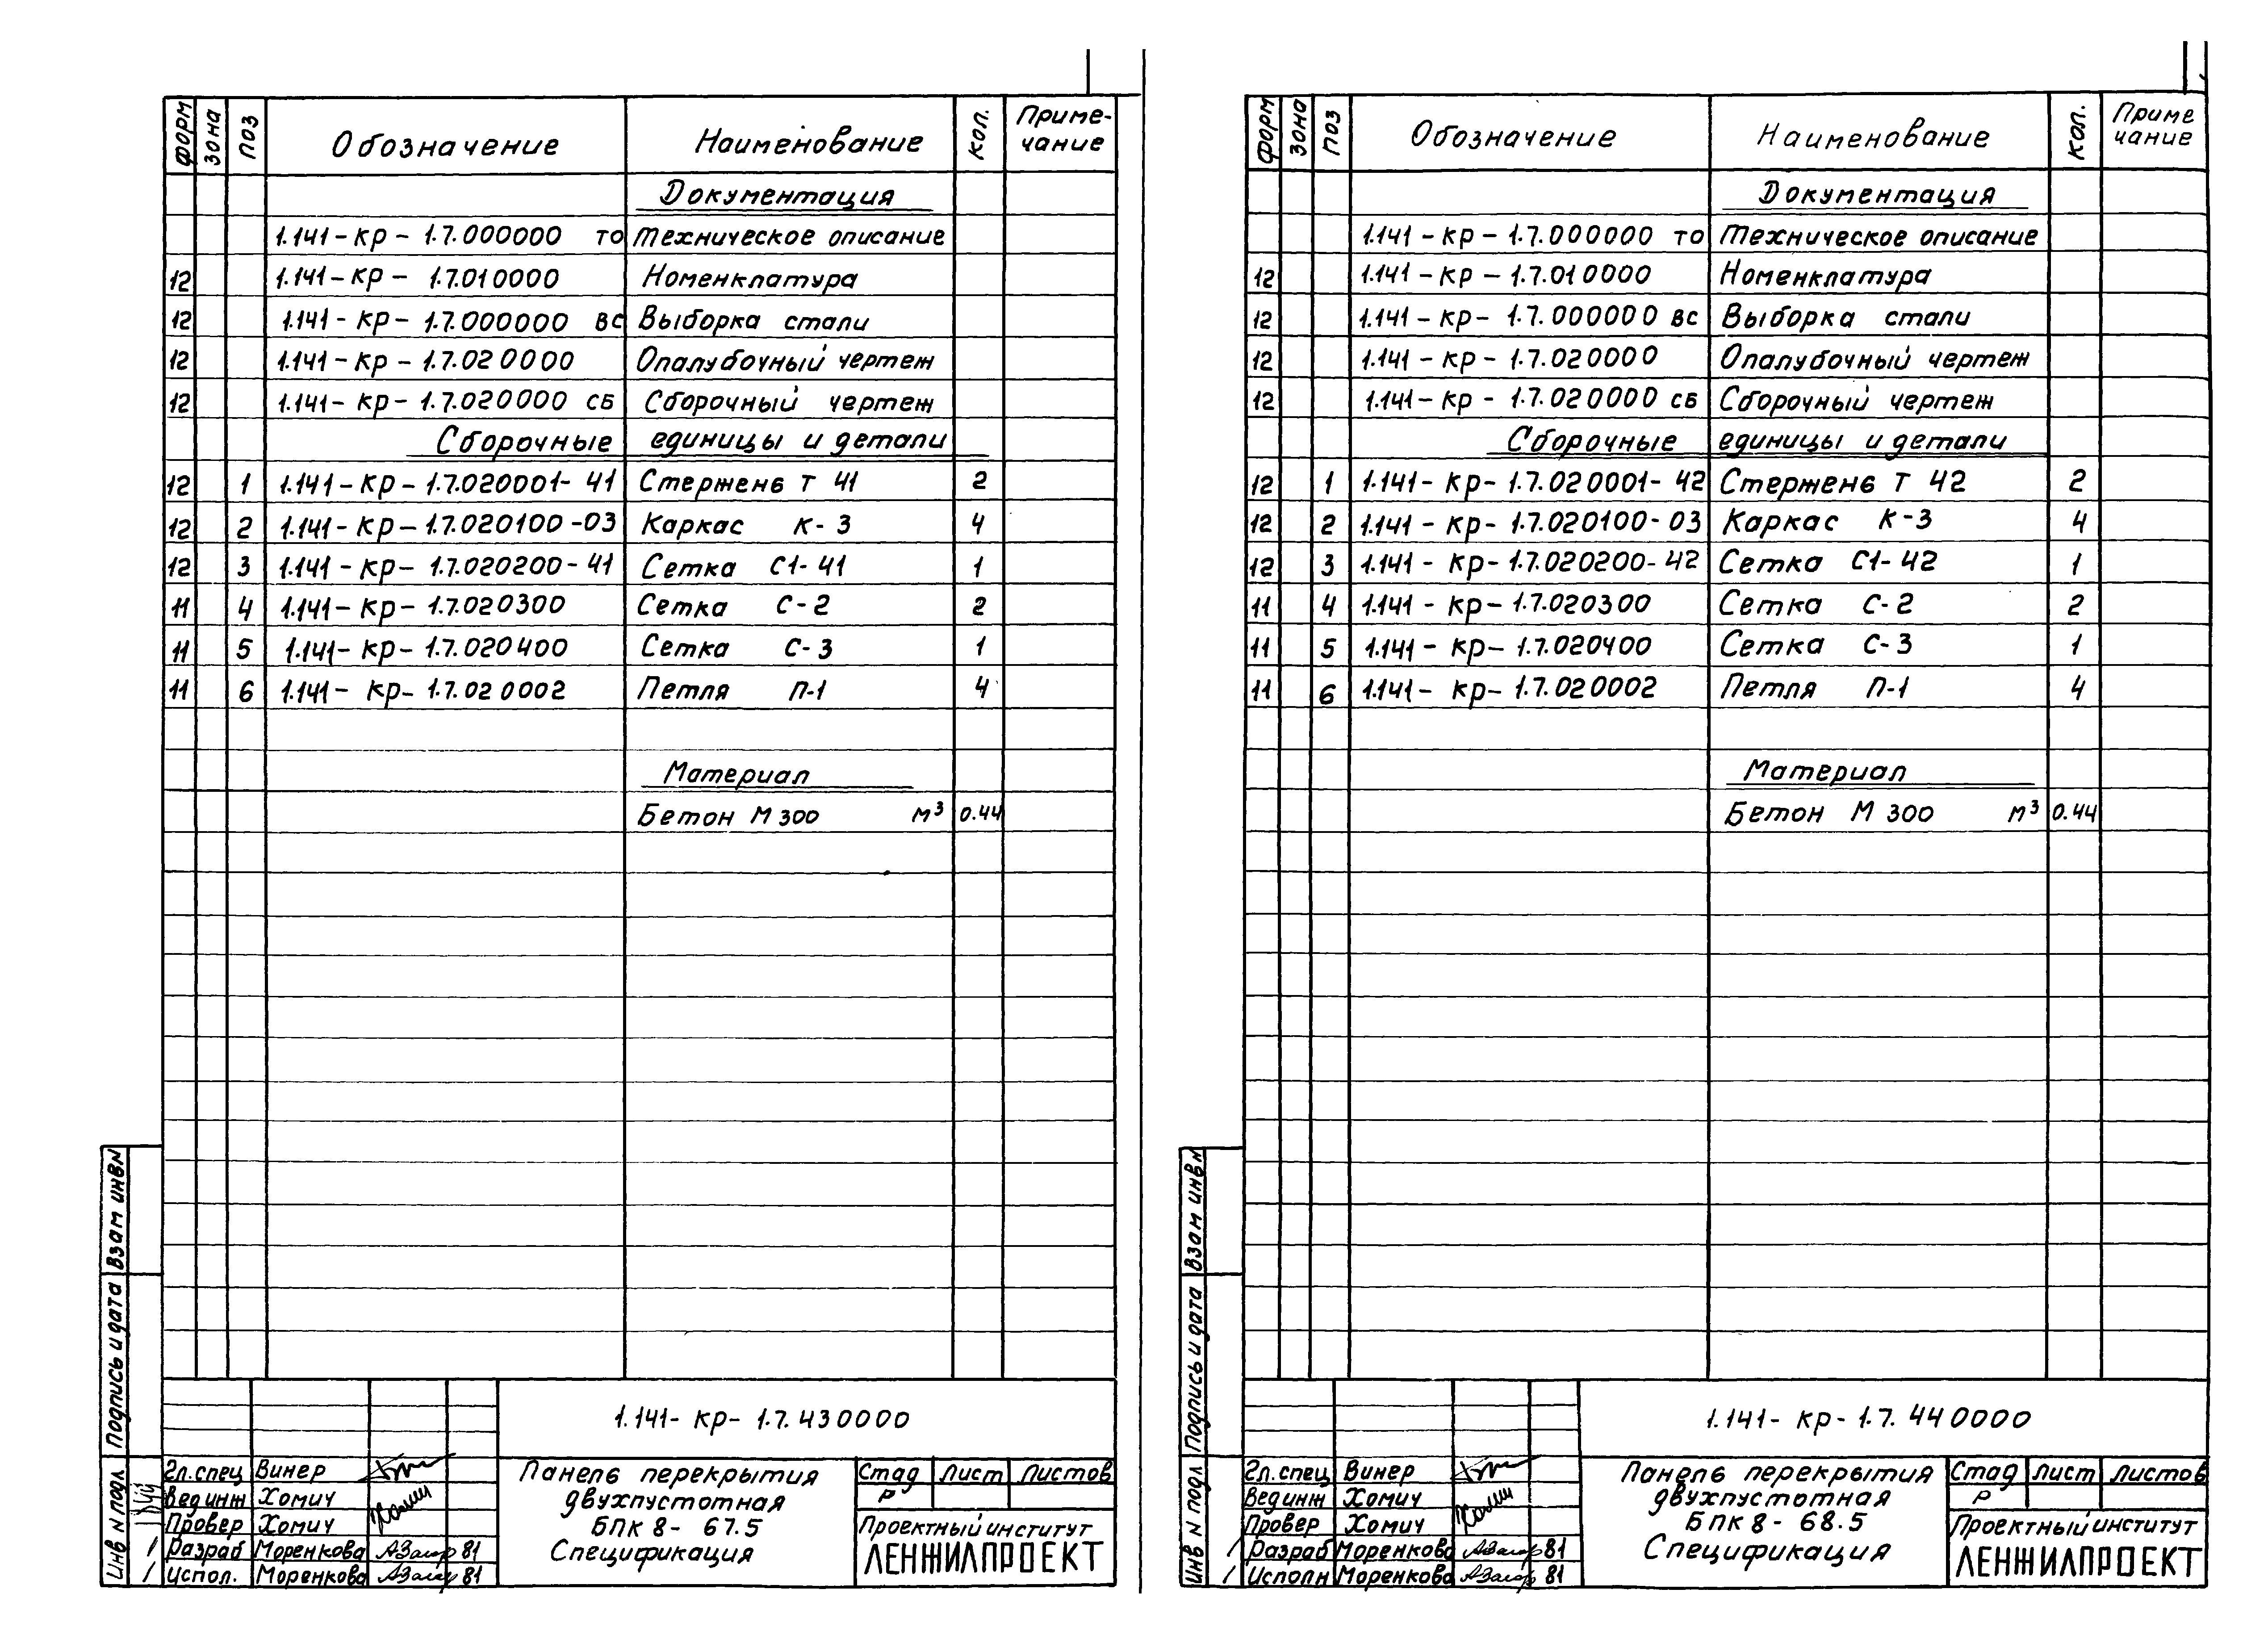 Форм Зона Поз Обозначение Наименование Кол. Приме-
чание
Документация
1.141-кр-1.7.000000 ТО Техническое описание
12 1.141-кр-1.7.010000 Номенклатура
12 1.141-кр-1.7.000000 ВС Выборка стали
12 1.141-кр-1.7.020000 Опалубочный чертеж
12 1.141-кр-1.7.020000 СБ Сборочный чертеж
Сборочные единицы и детали
12 1 1.141-кр-1.7.020001-41 Стержень Т 41 2
12 2 1.141-кр-1.7.020100-03 Каркас К-3 4
12 3 1.141-кр-1.7.020200-41 Сетка С1-41 1
11 4 1.141-кр-1.7.020300 Сетка С-2 2
11 5 1.141-кр-1.7.020400 Сетка С-3 1
11 6 1.141-кр-1.7.020002 Петля П-1 4
Материал
Бетон М 300 м³ 0.44
Взам инв N
Подпись и дата
Инв N подл
1.141-кр-1.7.430000
Гл.спец Винер
Вед инж Хомич
Провер Хомич
Разраб Моренкова 81
Испол. Моренкова 81
Панель перекрытия
двухпустотная
БПК 8-67.5
Спецификация
Стад Лист Листов
Р
Проектный институт
ЛЕНЖИЛПРОЕКТ
Форм Зона Поз Обозначение Наименование Кол. Приме
чание
Документация
1.141-кр-1.7.000000 ТО Техническое описание
12 1.141-кр-1.7.010000 Номенклатура
12 1.141-кр-1.7.000000 ВС Выборка стали
12 1.141-кр-1.7.020000 Опалубочный чертеж
12 1.141-кр-1.7.020000 СБ Сборочный чертеж
Сборочные единицы и детали
12 1 1.141-кр-1.7.020001-42 Стержень Т 42 2
12 2 1.141-кр-1.7.020100-03 Каркас К-3 4
12 3 1.141-кр-1.7.020200-42 Сетка С1-42 1
11 4 1.141-кр-1.7.020300 Сетка С-2 2
11 5 1.141-кр-1.7.020400 Сетка С-3 1
11 6 1.141-кр-1.7.020002 Петля П-1 4
Материал
Бетон М 300 м³ 0.44
Взам инв N
Подпись и дата
Инв N подл
1.141-кр-1.7.440000
Гл.спец Винер
Вед инж Хомич
Провер Хомич
Разраб Моренкова 81
Исполн Моренкова 81
Панель перекрытия
двухпустотная
БПК 8-68.5
Спецификация
Стад Лист Листов
Р
Проектный институт
ЛЕНЖИЛПРОЕКТ